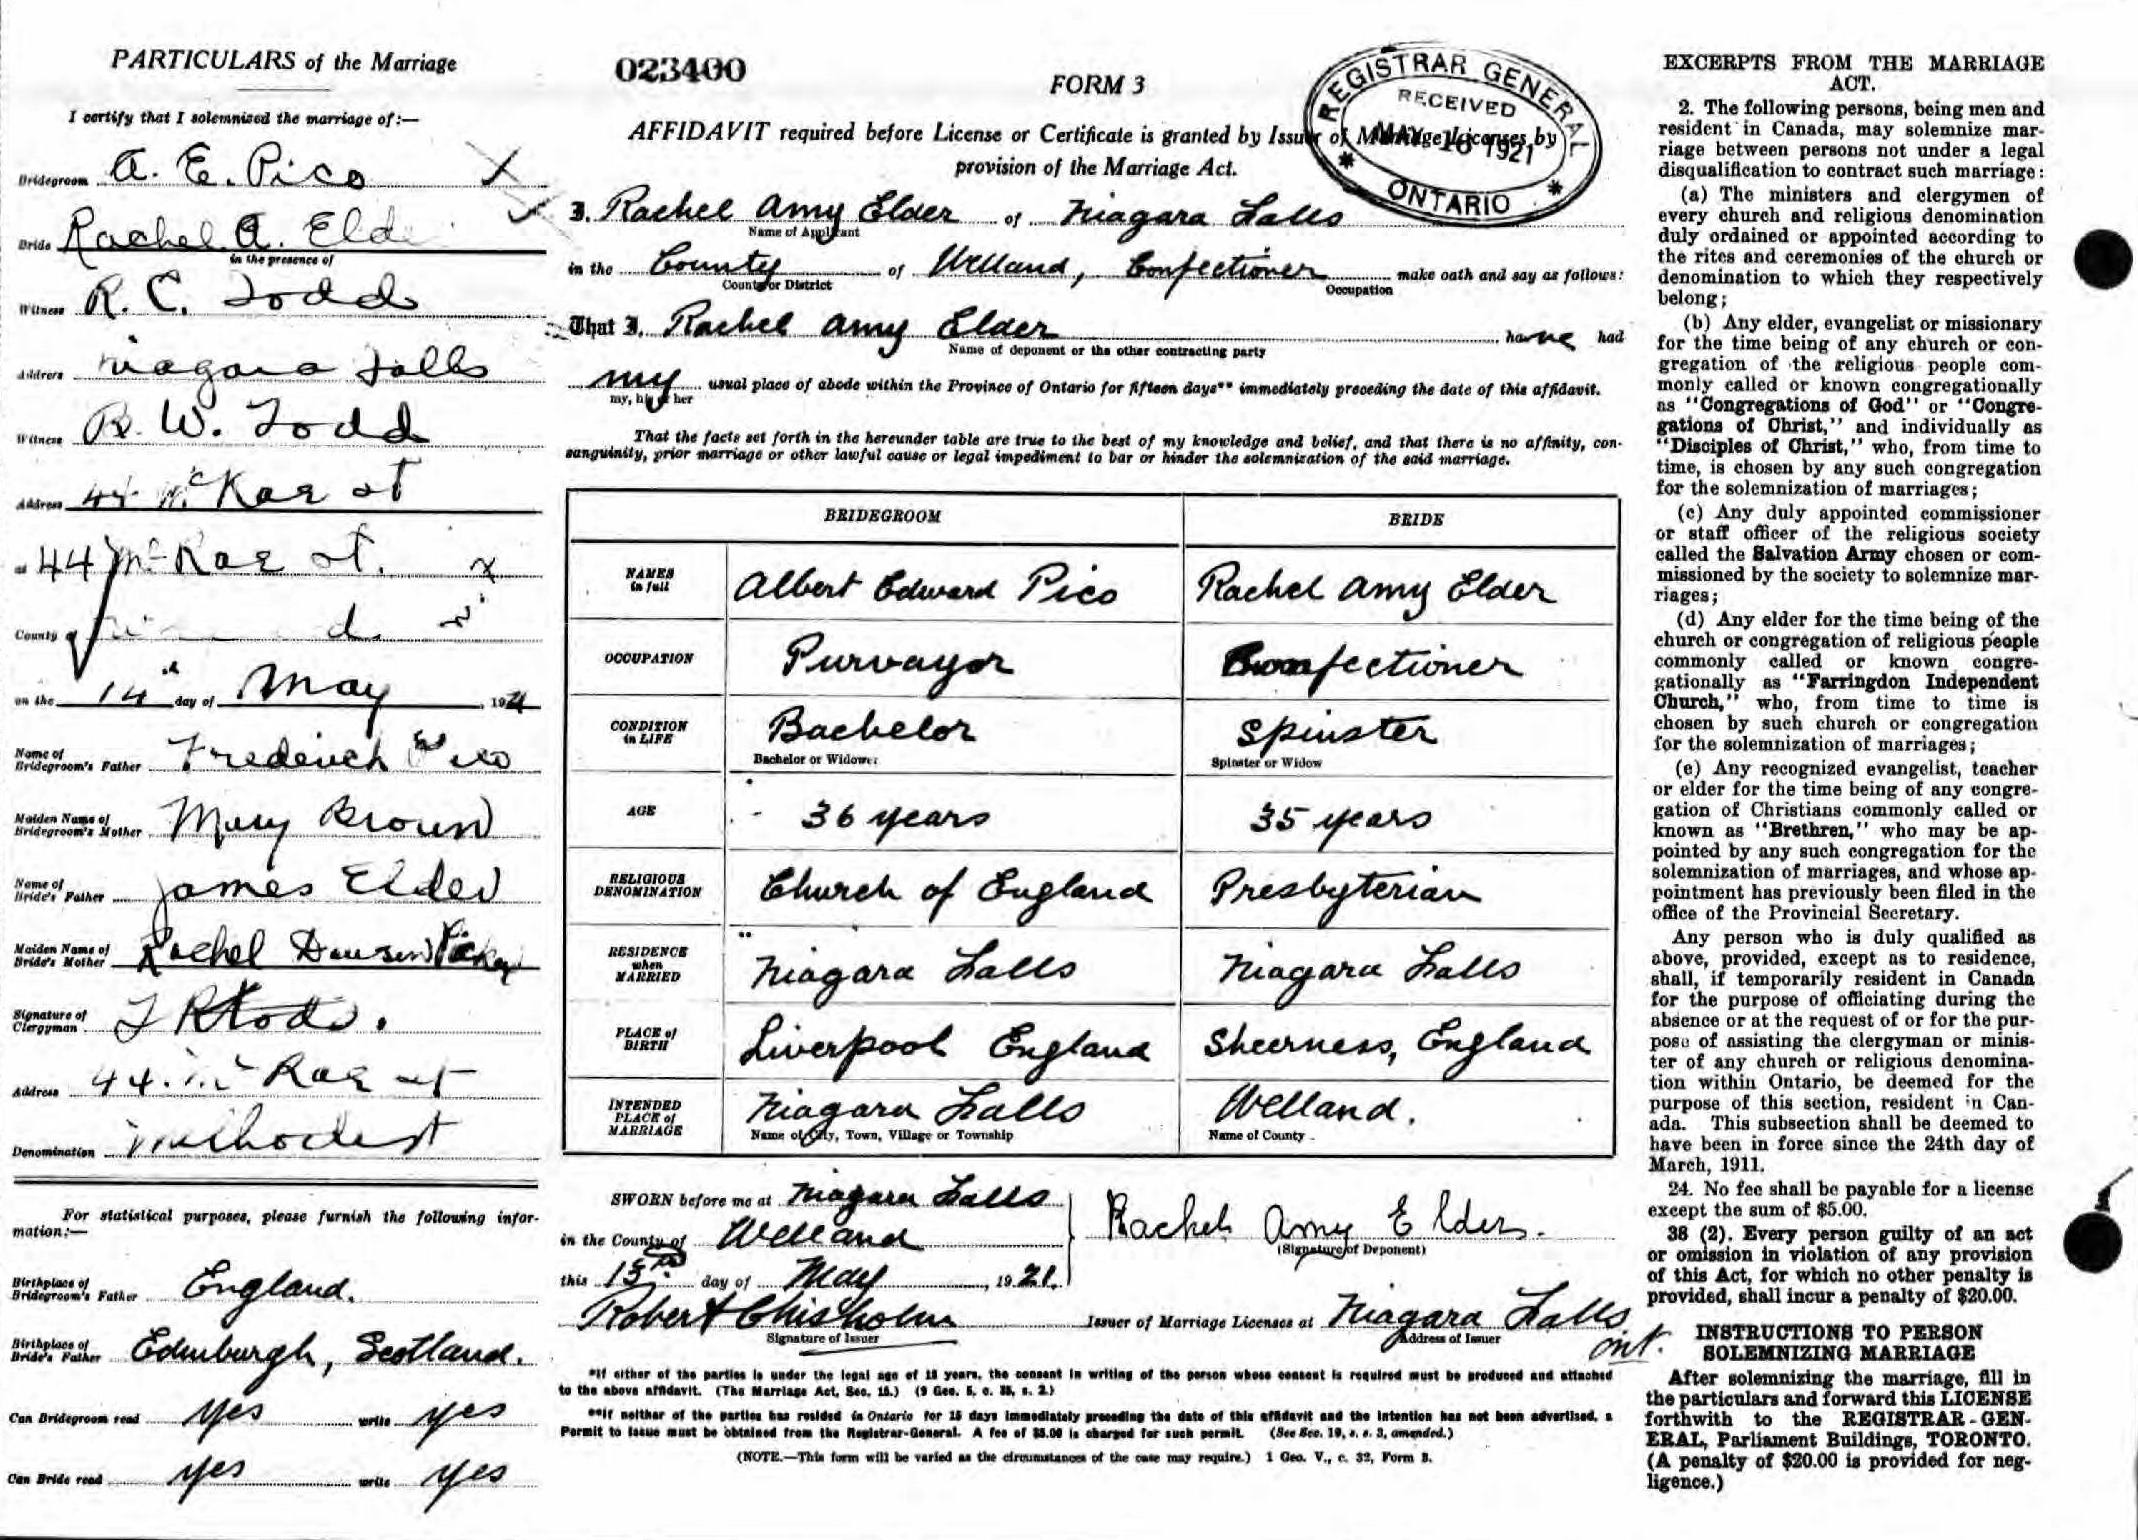 PARTICULARS of the Marriage
I certify that I solemnized the marriage of:—
Bridegroom A. E. Pico
Bride Rachel A. Elde
in the presence of
Witness R. C. Todd
Address Niagara Falls
Witness B. W. Todd
Address 44 McRae st
at 44 McRae st.
County of
on the 14th day of May 1921
Name of Bridegroom's Father Frederick Pico
Maiden Name of Bridegroom's Mother Mary Brown
Name of Bride's Father James Elder
Maiden Name of Bride's Mother Rachel
Signature of Clergyman
Address 44 Mc Rae st
Denomination Methodist
For statistical purposes, please furnish the following infor-
mation:—
Birthplace of Bridegroom's Father England.
Birthplace of Bride's Father Edinburgh, Scotland.
Can Bridegroom read yes write yes
Can Bride read yes write yes
023400
FORM 3
AFFIDAVIT required before License or Certificate is granted by Issuer of Marriage Licenses by
provision of the Marriage Act.
REGISTRAR GENERAL
RECEIVED
MAY 16 1921
* ONTARIO *
I, Rachel Amy Elder of Niagara Falls
Name of Applicant
in the County of Welland, Confectioner make oath and say as follows:
County or District
Occupation
That I, Rachel Amy Elder have had
Name of deponent or the other contracting party
my usual place of abode within the Province of Ontario for fifteen days** immediately preceding the date of this affidavit.
my, his or her
That the facts set forth in the hereunder table are true to the best of my knowledge and belief, and that there is no affinity, con-
sanguinity, prior marriage or other lawful cause or legal impediment to bar or hinder the solemnization of the said marriage.
BRIDEGROOM BRIDE
NAMES in full Albert Edward Pico Rachel Amy Elder
OCCUPATION Purvayor Confectioner
CONDITION in LIFE Bachelor Spinster
Bachelor or Widower Spinster or Widow
AGE 36 years 35 years
RELIGIOUS DENOMINATION Church of England Presbyterian
RESIDENCE when MARRIED Niagara Falls Niagara Falls
PLACE of BIRTH Liverpool England Sheerness, England
INTENDED PLACE of MARRIAGE Niagara Falls Welland.
Name of City, Town, Village or Township Name of County
SWORN before me at Niagara Falls
in the County of Welland
this 13th day of May, 1921.
Rachel Amy Elder.
(Signature of Deponent)
Robert Chisholm Issuer of Marriage Licenses at Niagara Falls Ont.
Signature of Issuer Address of Issuer
*If either of the parties is under the legal age of 18 years, the consent in writing of the person whose consent is required must be produced and attached
to the above affidavit. (The Marriage Act, Sec. 15.) (9 Geo. 5, c. 35, s. 2.)
**If neither of the parties has resided in Ontario for 15 days immediately preceding the date of this affidavit and the intention has not been advertised, a
Permit to issue must be obtained from the Registrar-General. A fee of $5.00 is charged for such permit. (See Sec. 19, s. s. 3, amended.)
(NOTE.—This form will be varied as the circumstances of the case may require.) 1 Geo. V., c. 32, Form 3.
EXCERPTS FROM THE MARRIAGE
ACT.
2. The following persons, being men and
resident in Canada, may solemnize mar-
riage between persons not under a legal
disqualification to contract such marriage:
(a) The ministers and clergymen of
every church and religious denomination
duly ordained or appointed according to
the rites and ceremonies of the church or
denomination to which they respectively
belong;
(b) Any elder, evangelist or missionary
for the time being of any church or con-
gregation of the religious people com-
monly called or known congregationally
as "Congregations of God" or "Congre-
gations of Christ," and individually as
"Disciples of Christ," who, from time to
time, is chosen by any such congregation
for the solemnization of marriages;
(c) Any duly appointed commissioner
or staff officer of the religious society
called the Salvation Army chosen or com-
missioned by the society to solemnize mar-
riages;
(d) Any elder for the time being of the
church or congregation of religious people
commonly called or known congre-
gationally as "Farringdon Independent
Church," who, from time to time is
chosen by such church or congregation
for the solemnization of marriages;
(e) Any recognized evangelist, teacher
or elder for the time being of any congre-
gation of Christians commonly called or
known as "Brethren," who may be ap-
pointed by any such congregation for the
solemnization of marriages, and whose ap-
pointment has previously been filed in the
office of the Provincial Secretary.
Any person who is duly qualified as
above, provided, except as to residence,
shall, if temporarily resident in Canada
for the purpose of officiating during the
absence or at the request of or for the pur-
pose of assisting the clergyman or minis-
ter of any church or religious denomina-
tion within Ontario, be deemed for the
purpose of this section, resident in Can-
ada. This subsection shall be deemed to
have been in force since the 24th day of
March, 1911.
24. No fee shall be payable for a license
except the sum of $5.00.
38 (2). Every person guilty of an act
or omission in violation of any provision
of this Act, for which no other penalty is
provided, shall incur a penalty of $20.00.
INSTRUCTIONS TO PERSON
SOLEMNIZING MARRIAGE
After solemnizing the marriage, fill in
the particulars and forward this LICENSE
forthwith to the REGISTRAR-GEN-
ERAL, Parliament Buildings, TORONTO.
(A penalty of $20.00 is provided for neg-
ligence.)